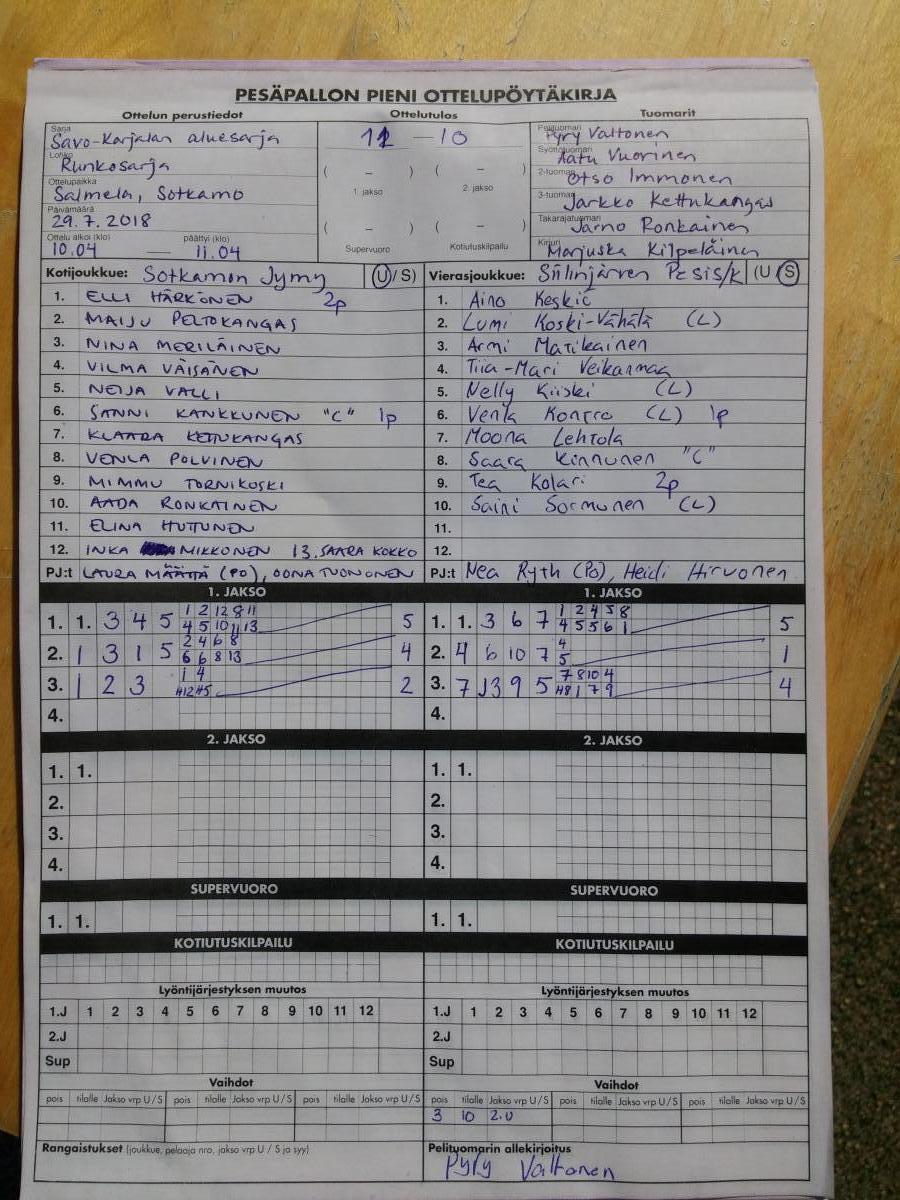 PESÄPALLON PIENI OTTELUPÖYTÄKIRJA
Ottelun perustiedot Ottelutulos Tuomarit
Sarja Savo-Karjalan aluesarja
Lohko Runkosarja
Ottelupaikka Salmela, Sotkamo
Päivämäärä 29.7.2018
Ottelu alkoi (klo) 10.04 — päättyi (klo) 11.04
11 — 10
( – ) ( – )
1. jakso 2. jakso
( – ) ( – )
Supervuoro Kotiutuskilpailu
Pelituomari Pyry Valtonen
Syöttötuomari Aatu Vuorinen
2-tuomari Otso Immonen
3-tuomari Jarkko Kettukangas
Takarajatuomari Jarno Ronkainen
Kirjuri Marjuska Kilpeläinen
Kotijoukkue: Sotkamon Jymy (U/S)
1. ELLI HÄRKÖNEN 2p
2. MAIJU PELTOKANGAS
3. NINA MERILÄINEN
4. VILMA VÄISÄNEN
5. NEIJA VALLI
6. SANNI KANKKUNEN "C" 1p
7. KLAARA KETTUKANGAS
8. VENLA POLVINEN
9. MIMMU TORNIKOSKI
10. AADA RONKAINEN
11. ELINA HUTTUNEN
12. INKA MIKKONEN 13. SAARA KOKKO
PJ:t LAURA MÄÄTTÄ (PO), OONA TUONONEN
Vierasjoukkue: Siilinjärven Pesis/k (U S)
1. Aino Keskic
2. Lumi Koski-Vähälä (L)
3. Armi Matikainen
4. Tiia-Mari Veikanmaa
5. Nelly Kiiski (L)
6. Venla Kontro (L) 1p
7. Moona Lehtola
8. Saara Kinnunen "C"
9. Tea Kolari 2p
10. Saini Sormunen (L)
11.
12.
PJ:t Nea Ryth (PO), Heidi Hirvonen
1. JAKSO
1. 1. 3 4 5 1 2 12 8 11 5
4 5 10 11 13
2. 1 3 1 5 2 4 6 8 4
6 6 8 13
3. 1 2 3 1 4 2
H12 H5
4.
1. JAKSO
1. 1. 3 6 7 1 2 4 5 8 5
4 5 5 6 1
2. 4 6 10 7 4 1
5
3. 7 J3 9 5 7 8 10 4 4
H8 1 7 9
4.
2. JAKSO
1. 1.
2.
3.
4.
2. JAKSO
1. 1.
2.
3.
4.
SUPERVUORO
1. 1.
SUPERVUORO
1. 1.
KOTIUTUSKILPAILU
KOTIUTUSKILPAILU
Lyöntijärjestyksen muutos
1.J 1 2 3 4 5 6 7 8 9 10 11 12
2.J
Sup
Lyöntijärjestyksen muutos
1.J 1 2 3 4 5 6 7 8 9 10 11 12
2.J
Sup
Vaihdot
pois tilalle Jakso vrp U/S pois tilalle Jakso vrp U/S pois tilalle Jakso vrp U/S
Vaihdot
pois tilalle Jakso vrp U/S pois tilalle Jakso vrp U/S pois tilalle Jakso vrp U/S
3 10 2.U
Rangaistukset (joukkue, pelaaja nro, jakso vrp U / S ja syy)
Pelituomarin allekirjoitus
Pyry Valtonen